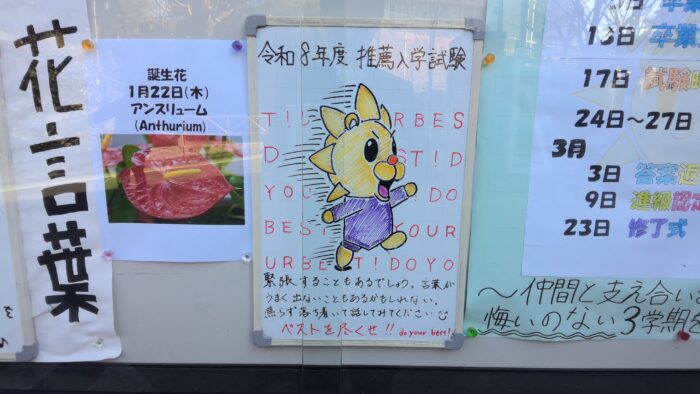 花言葉
誕生花
1月22日(木)
アンスリューム
(Anthurium)
令和8年度 推薦入学試験
T!
URBES
D
ST!D
YOU
DO
BES
YOUR
URBE
T!DOYO
緊張することもあるでしょう。言葉が
うまく出ないこともあるかもしれない。
焦らず落ち着いて話してみてください
ベストを尽くせ!! do your best!
卒業
17日 試験
24日〜27日
3月
3日 答案返
9日 進級認定
23日 修了式
〜仲間と支え合い
悔いのない3学期を